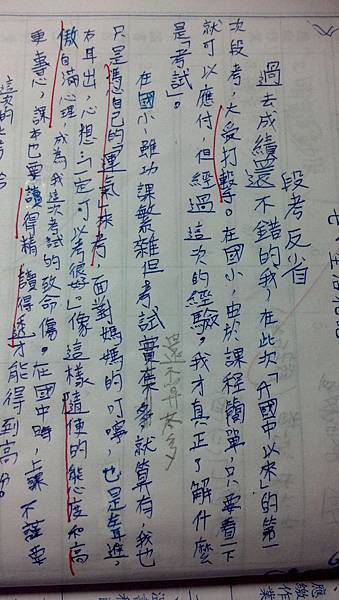 段考反省
過去成績還不錯的我,在此次「升國中以來」的第一
次段考,大受打擊。在國小,由於課程簡單,只要看一下
就可以應付,但經過這次的經驗。我才真正了解什麼
是「考試」。
在國小,雖功課繁雜但考試多就算有,我也
只是馮自己的「運氣」來考,面對媽媽的叮嚀,也是左耳進,
右耳出,心想:「一定可以考很好」像這樣隨便的態度和高
傲自滿心理,成為我這次考試的致命傷。在國中時,上課不謹要
更專心,課本也要讀得精、讀得透才能得到高分。
這次的